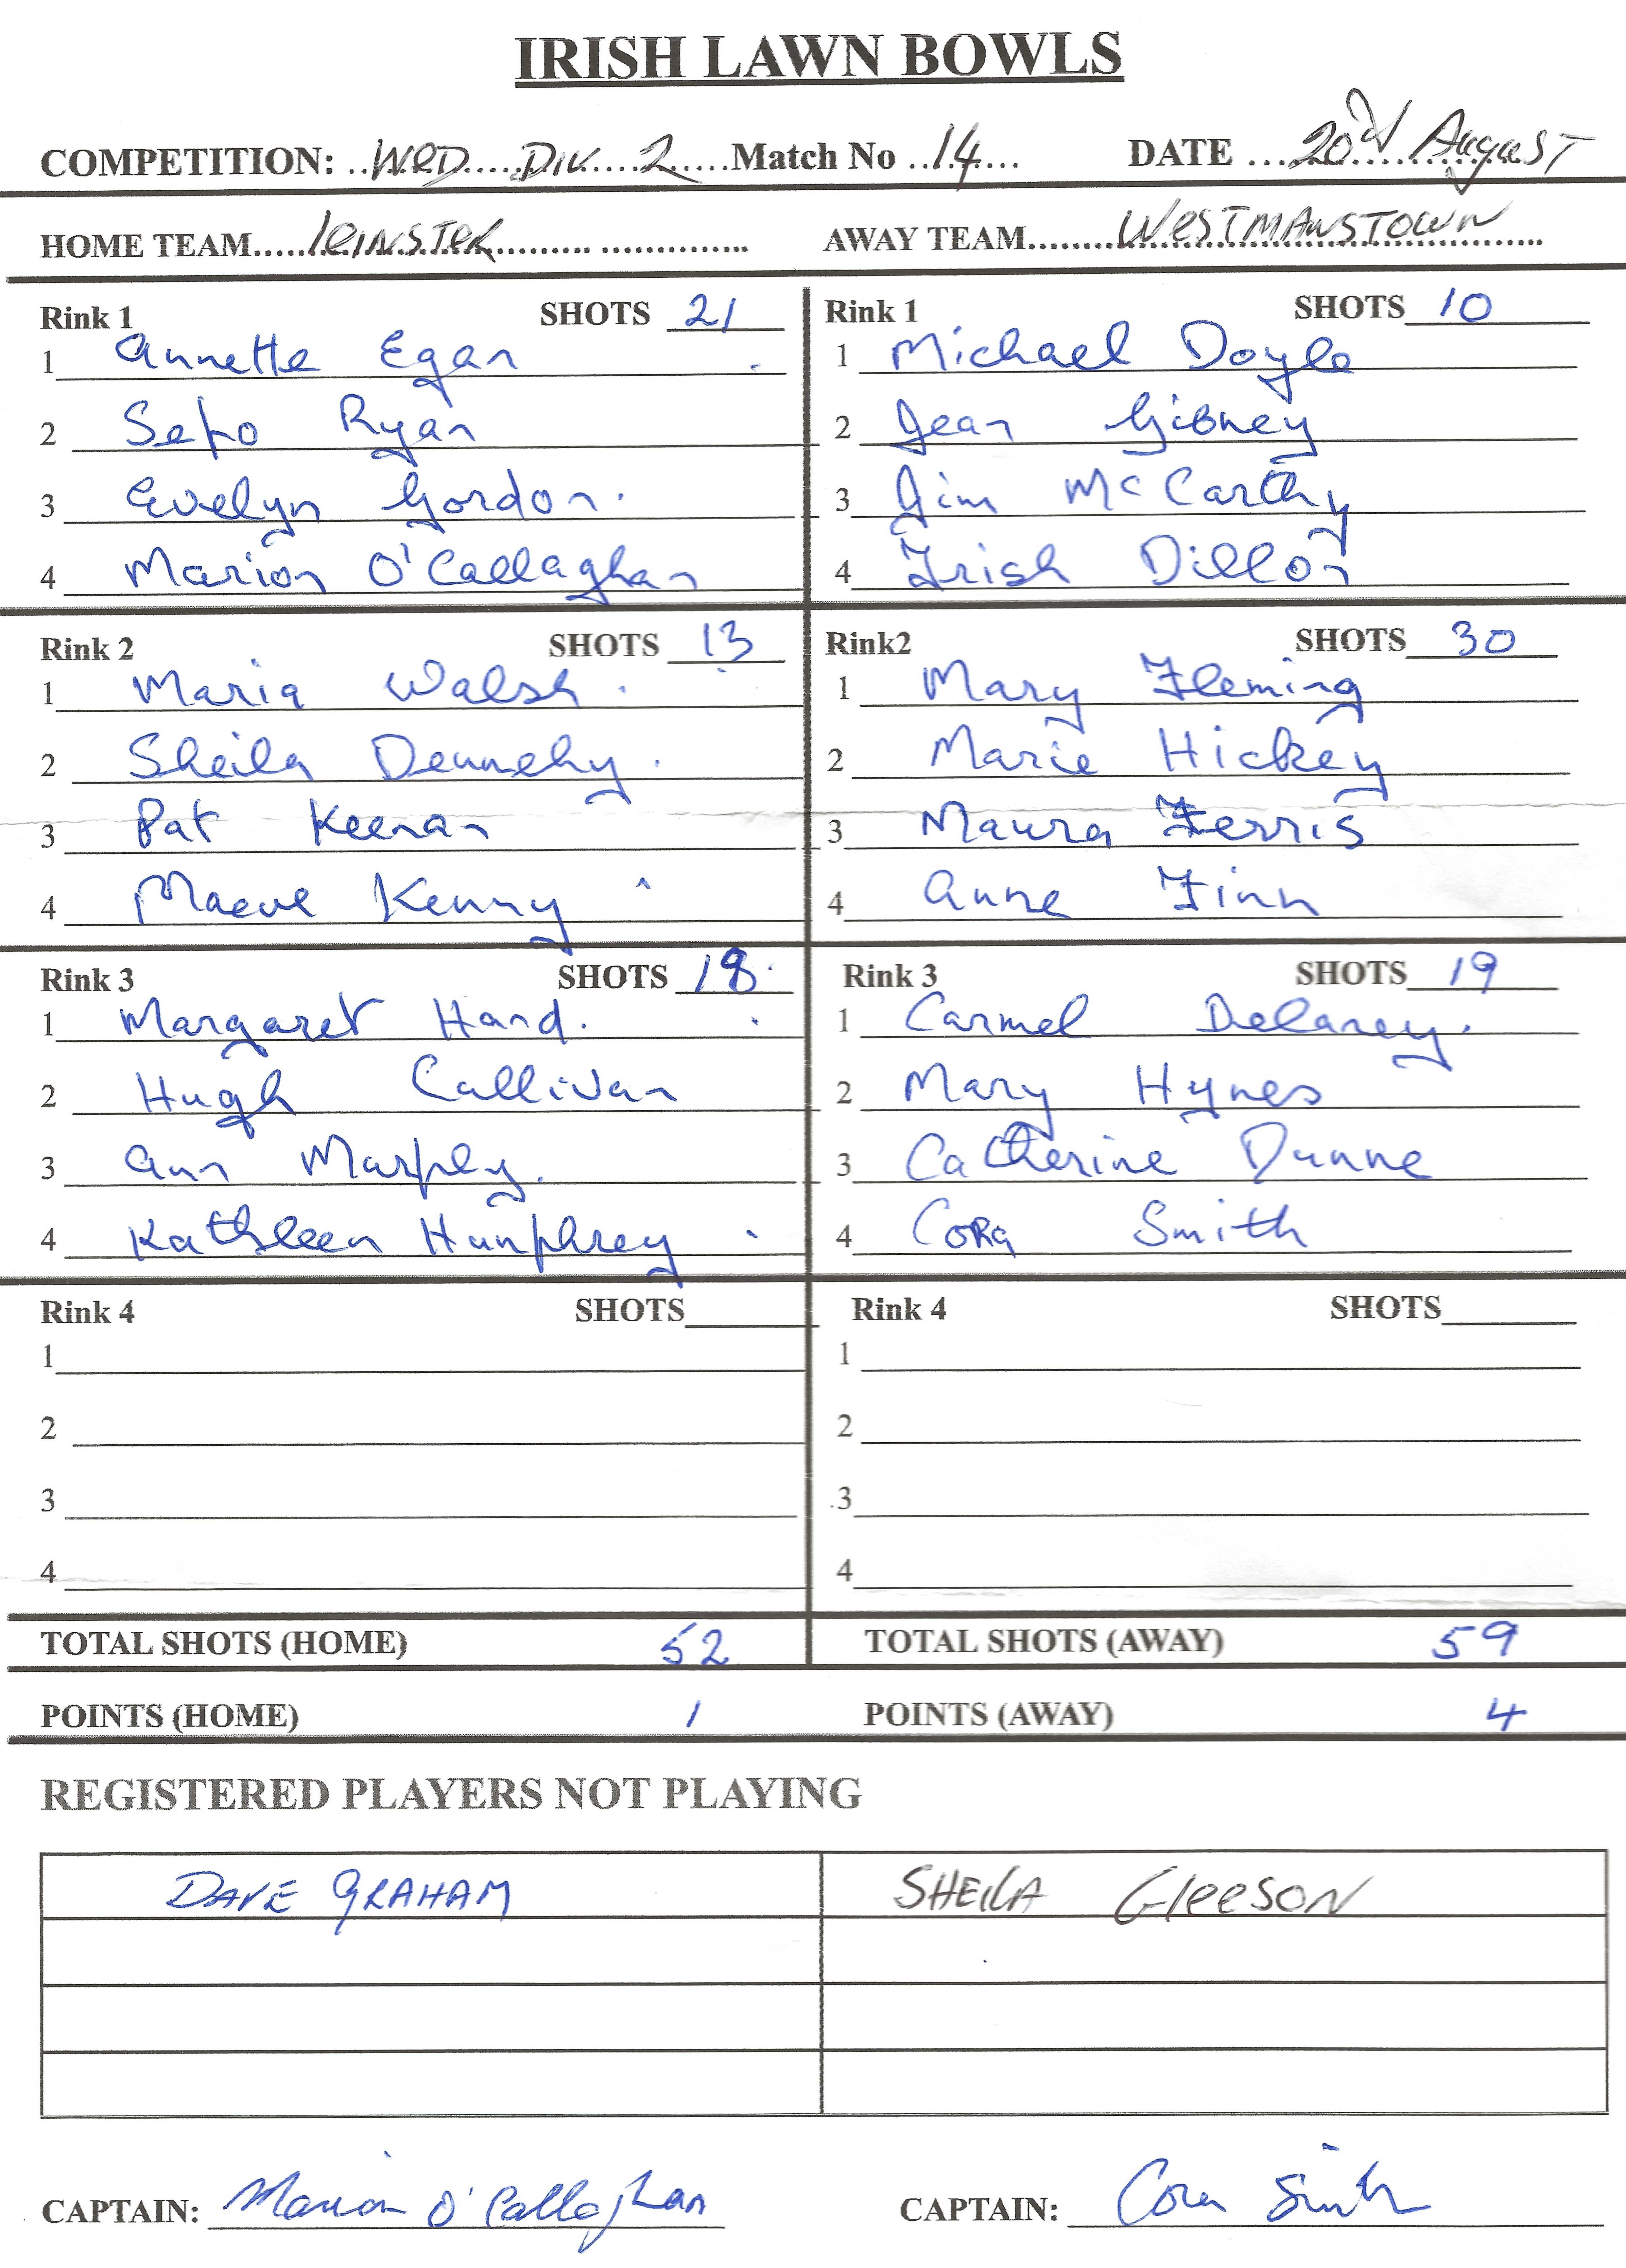 IRISH LAWN BOWLS
COMPETITION: WED DIV 2 Match No 14 DATE 20th August
HOME TEAM LEINSTER AWAY TEAM WESTMANSTOWN
Rink 1 SHOTS 21 Rink 1 SHOTS 10
1 Annette Egan 1 Michael Doyle
2 Ryan 2 Jean Gibney
3 Evelyn Gordon. 3 Jim McCarthy
4 Marion O'Callaghan 4 Trish Dillon
Rink 2 SHOTS 13 Rink2 SHOTS 30
1 Maria Walsh. 1 Mary Fleming
2 Sheila Dennehy. 2 Marie Hickey
3 Pat Keenan 3 Maura Ferris
4 Maeve Kenny 4 Anne Finn
Rink 3 SHOTS 18 Rink 3 SHOTS 19
1 Margaret Hand. 1 Carmel Delaney.
2 Hugh Callivan 2 Mary Hynes
3 Ann Murphy. 3 Catherine Dunne
4 Kathleen Humphrey 4 Cora Smith
Rink 4 SHOTS Rink 4 SHOTS
1 1
2 2
3 3
4 4
TOTAL SHOTS (HOME) 52 TOTAL SHOTS (AWAY) 59
POINTS (HOME) 1 POINTS (AWAY) 4
REGISTERED PLAYERS NOT PLAYING
DAVE GRAHAM SHEILA GLEESON
CAPTAIN: Marion O'Callaghan CAPTAIN: Cora Smith